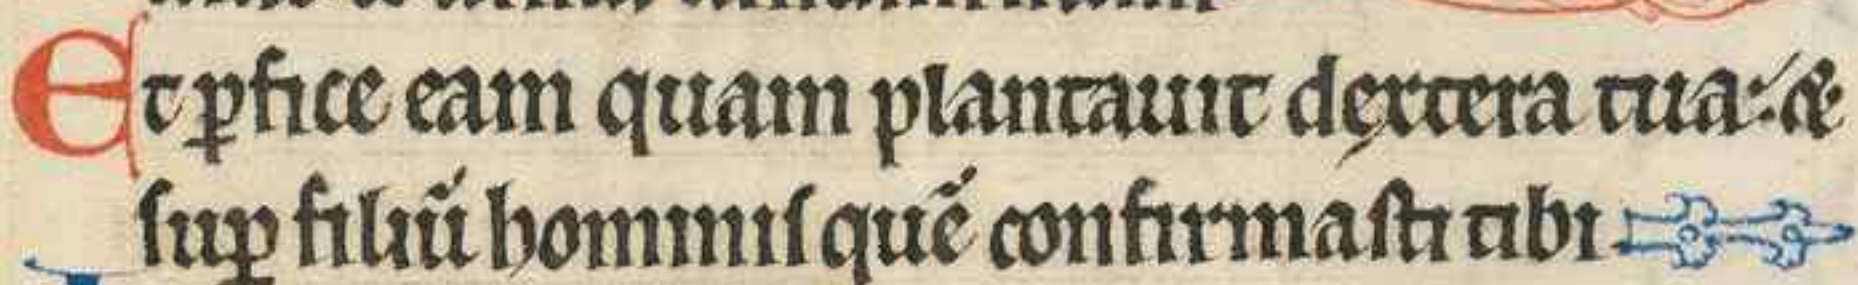 Et ꝑfice eam quam plantauit dextera tua: &
suꝑ filiū hominis quē confirmasti tibi